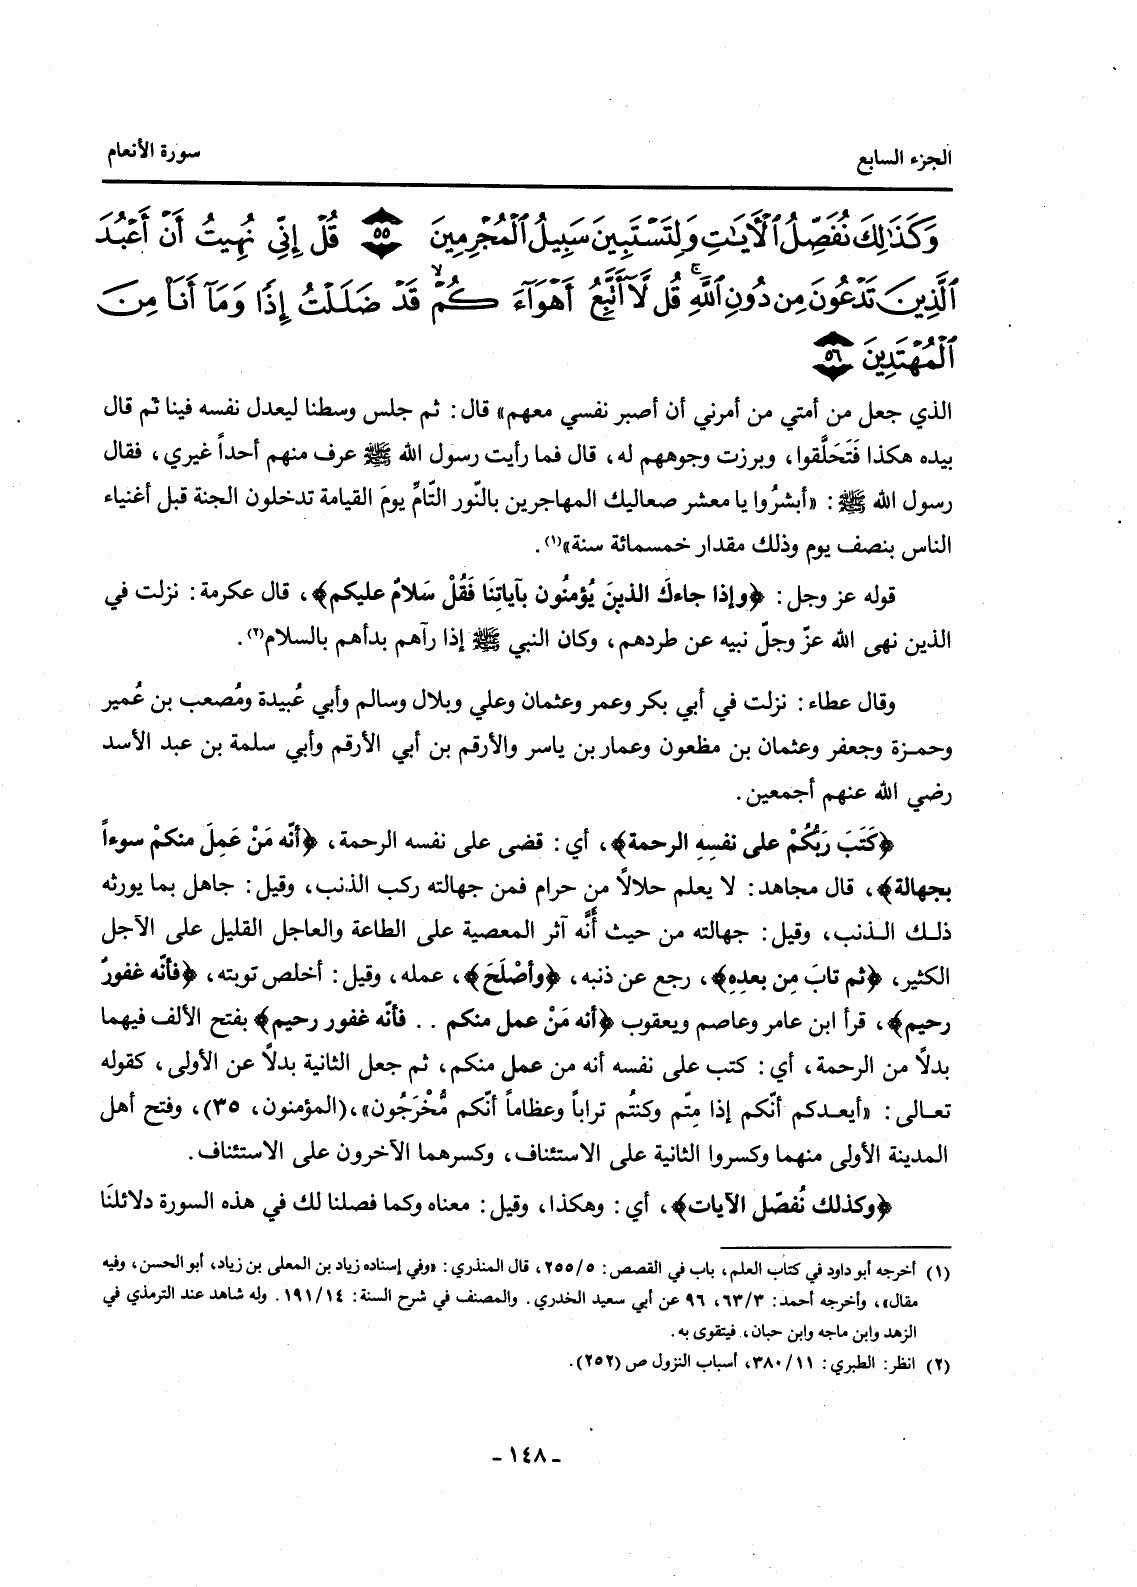 الجزء السابع
سورة الأنعام
وَكَذَٰلِكَ نُفَصِّلُ ٱلْأَيَـٰتِ وَلِتَسْتَبِينَ سَبِيلُ ٱلْمُجْرِمِينَ ﴿٥٥﴾ قُلْ إِنِّي نُهِيتُ أَنْ أَعْبُدَ
ٱلَّذِينَ تَدْعُونَ مِن دُونِ ٱللَّهِ ۚ قُل لَّآ أَتَّبِعُ أَهْوَآءَكُمْ ۙ قَدْ ضَلَلْتُ إِذًا وَمَآ أَنَا۠ مِنَ
ٱلْمُهْتَدِينَ ﴿٥٦﴾
الذي جعل من أمتي من أمرني أن أصبر نفسي معهم» قال: ثم جلس وسطنا ليعدل نفسه فينا ثم قال
بيده هكذا فَتَحَلَّقوا، وبرزت وجوههم له، قال فما رأيت رسول الله ﷺ عرف منهم أحداً غيري، فقال
رسول الله ﷺ: «أبشرُوا يا معشر صعاليك المهاجرين بالنّور التّامِّ يومَ القيامة تدخلون الجنة قبل أغنياء
الناس بنصف يوم وذلك مقدار خمسمائة سنة»(١).
قوله عز وجل: ﴿وإذا جاءكَ الذينَ يُؤمنُون بآياتِنَا فَقُلْ سَلامٌ عليكم﴾، قال عكرمة: نزلت في
الذين نهى الله عزّ وجلّ نبيه عن طردهم، وكان النبي ﷺ إذا رآهم بدأهم بالسلام(٢).
وقال عطاء: نزلت في أبي بكر وعمر وعثمان وعلي وبلال وسالم وأبي عُبيدة ومُصعب بن عُمير
وحمزة وجعفر وعثمان بن مظعون وعمار بن ياسر والأرقم بن أبي الأرقم وأبي سلمة بن عبد الأسد
رضي الله عنهم أجمعين.
﴿كَتَبَ رَبُّكُمْ على نفسِهِ الرحمة﴾، أي: قضى على نفسه الرحمة، ﴿أنّه مَنْ عَمِلَ منكمْ سوءاً
بجهالة﴾، قال مجاهد: لا يعلم حلالاً من حرام فمن جهالته ركب الذنب، وقيل: جاهل بما يورثه
ذلك الذنب، وقيل: جهالته من حيث أنَّه آثر المعصية على الطاعة والعاجل القليل على الآجل
الكثير، ﴿ثم تابَ مِن بعدِهِ﴾، رجع عن ذنبه، ﴿وأصْلَحَ﴾، عمله، وقيل: أخلص توبته، ﴿فأنّه غفورٌ
رحيم﴾، قرأ ابن عامر وعاصم ويعقوب ﴿أنه مَنْ عمل منكم .. فأنّه غفور رحيم﴾ بفتح الألف فيهما
بدلاً من الرحمة، أي: كتب على نفسه أنه من عمل منكم، ثم جعل الثانية بدلاً عن الأولى، كقوله
تعالى: «أيعدكم أنّكم إذا مِتّم وكنتُم تراباً وعظاماً أنّكم مُّخْرَجُون»،(المؤمنون، ٣٥)، وفتح أهل
المدينة الأولى منهما وكسروا الثانية على الاستئناف، وكسرهما الآخرون على الاستئناف.
﴿وكذلك نُفصّل الآيات﴾، أي: وهكذا، وقيل: معناه وكما فصلنا لك في هذه السورة دلائلنَا
(١) أخرجه أبو داود في كتاب العلم، باب في القصص: ٢٥٥/٥، قال المنذري: «وفي إسناده زياد بن المعلى بن زياد، أبو الحسن، وفيه
مقال»، وأخرجه أحمد: ٦٣/٣، ٩٦ عن أبي سعيد الخدري. والمصنف في شرح السنة: ١٩١/١٤. وله شاهد عند الترمذي في
الزهد وابن ماجه وابن حبان، فيتقوى به.
(٢) انظر: الطبري: ٣٨٠/١١، أسباب النزول ص (٢٥٢).
ـ ١٤٨ ـ